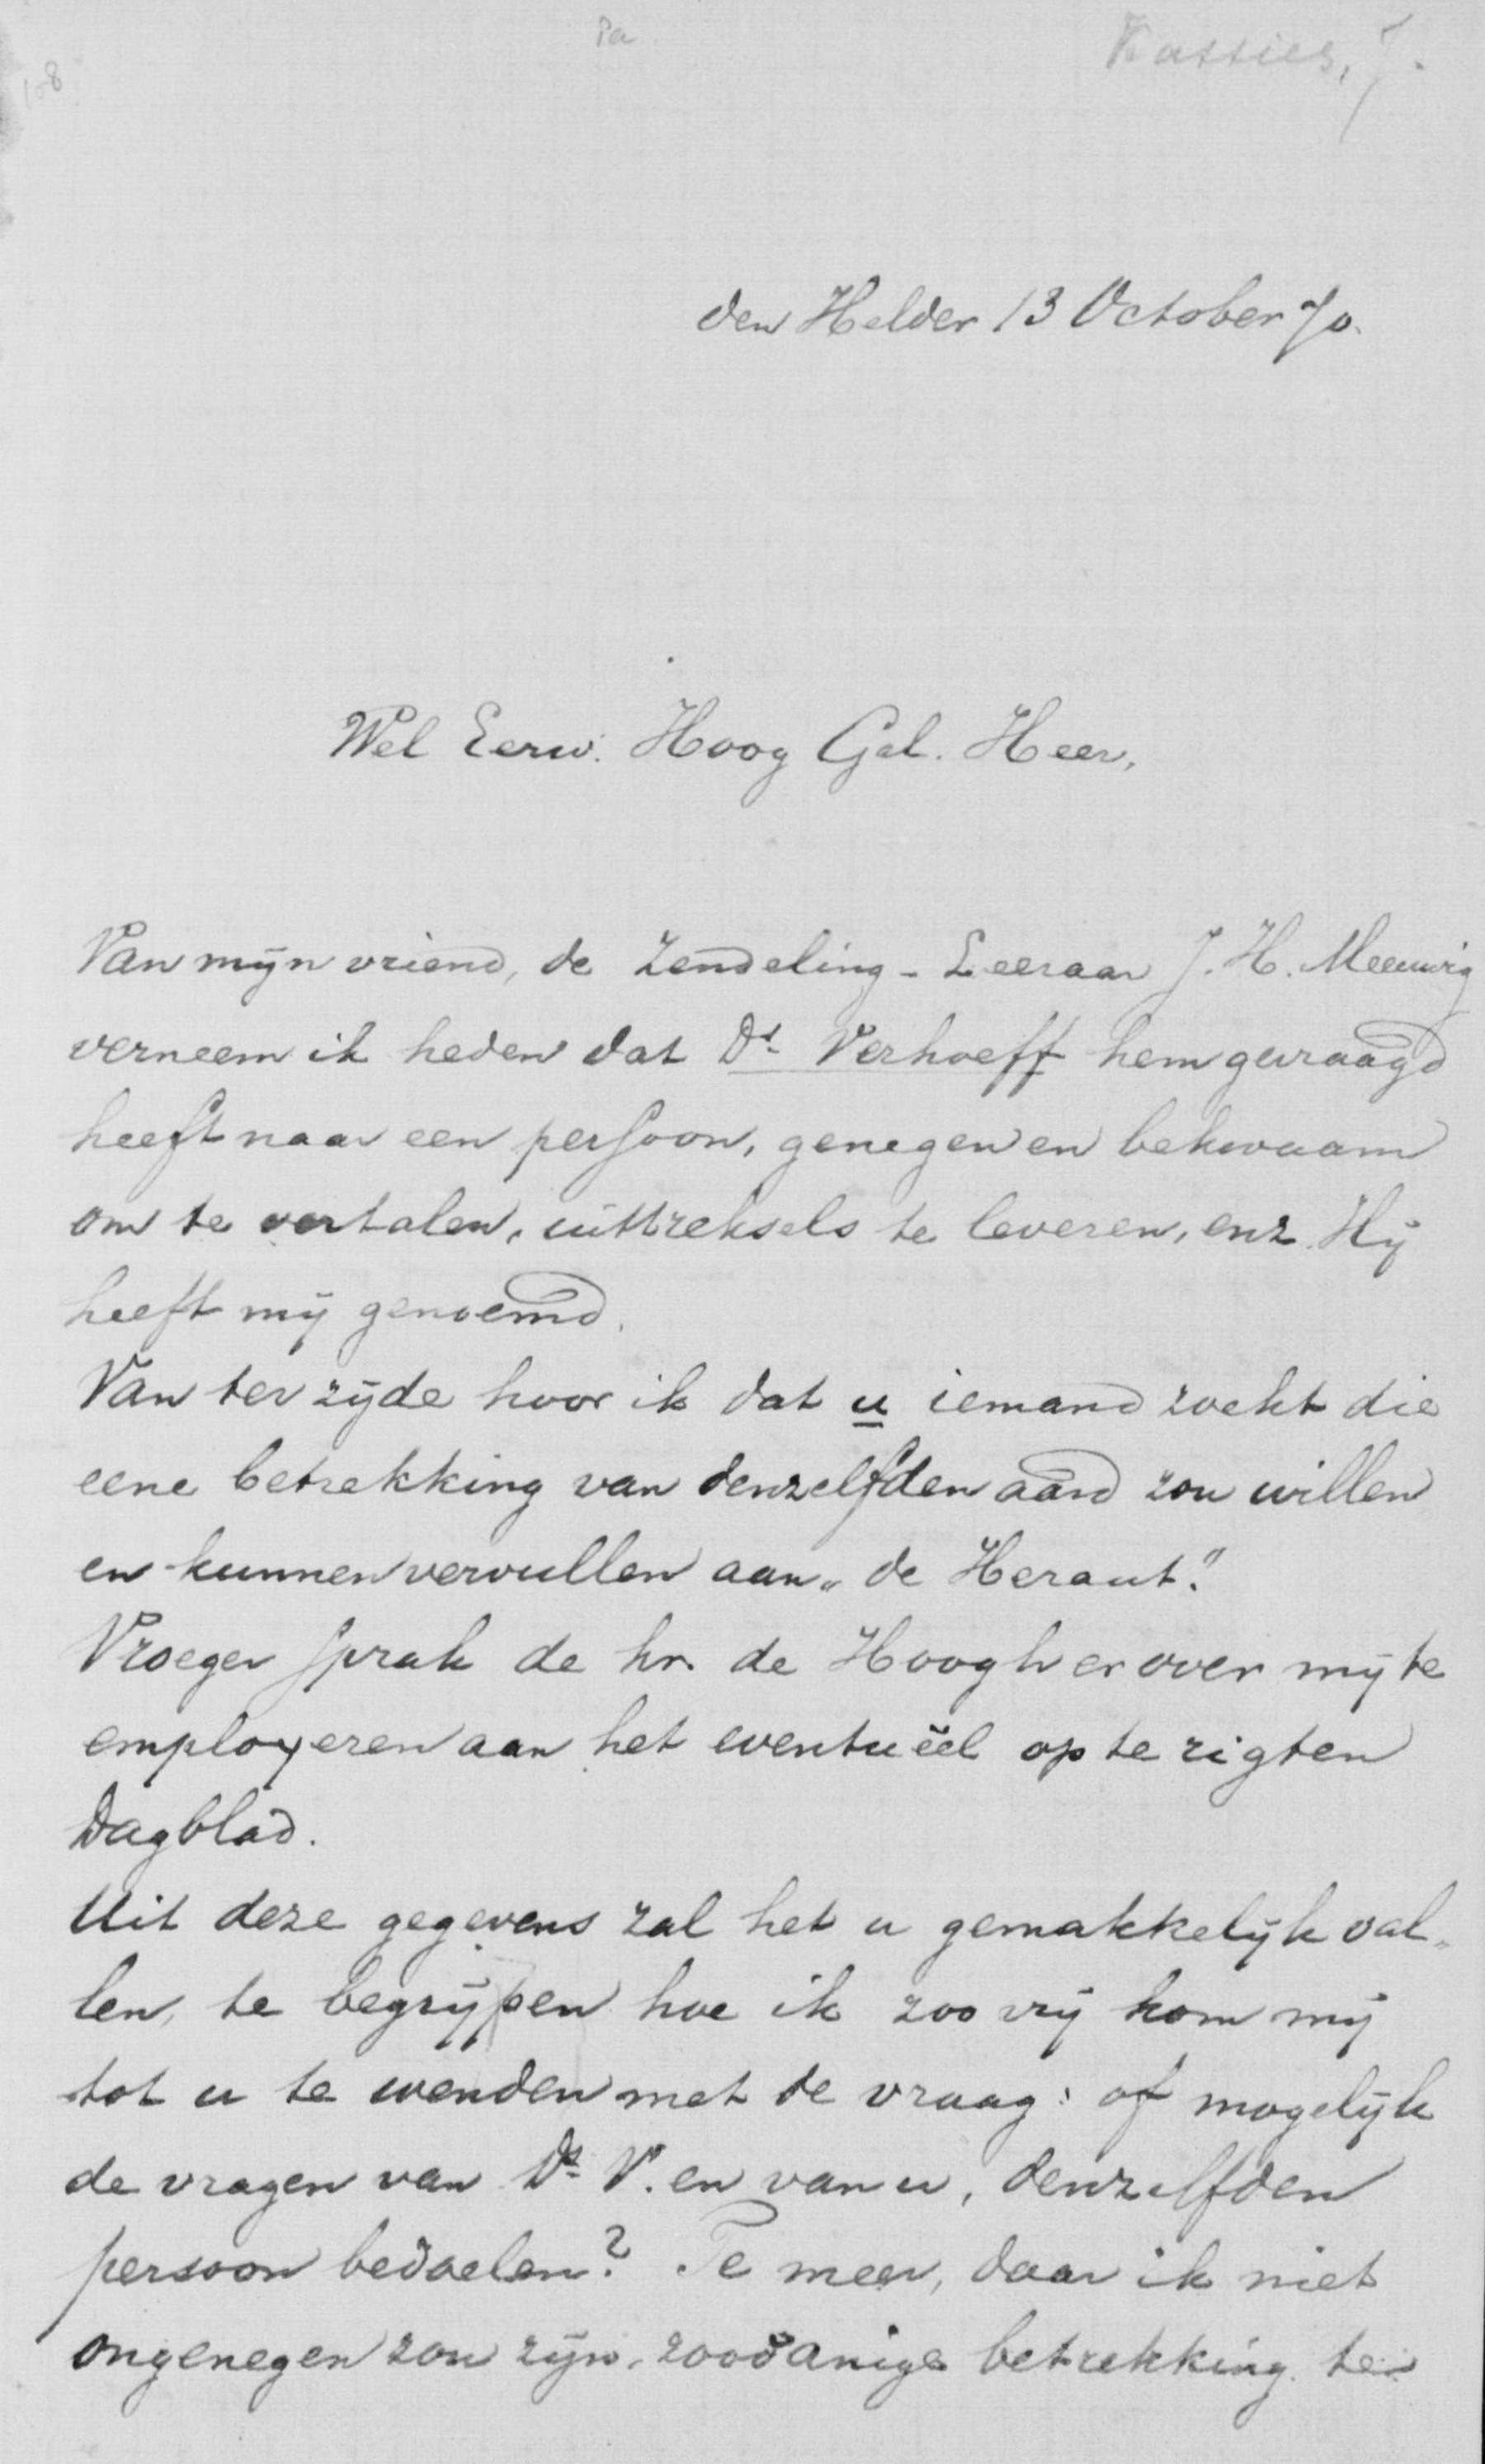 108
Pa
Kasties, J.
den Helder 13 October 70.
Wel Eerw. Hoog Gel. Heer,
Van mijn vriend, de Zendeling - Leeraar J. H. Meeuwig
verneem ik heden dat Ds. Verhoeff hem gevraagd
heeft naar een persoon, genegen en bekwaam
om te vertalen, uittreksels te leveren, enz. Hij
heeft mij genoemd.
Van ter zijde hoor ik dat u iemand zoekt die
eene betrekking van denzelfden aard zou willen
en kunnen vervullen aan „de Heraut."
Vroeger sprak de hr. de Hoogh er over mij te
employeren aan het eventuëel op te rigten
Dagblad.
Uit deze gegevens zal het u gemakkelijk val„
len, te begrijpen hoe ik zoo vrij kom mij
tot u te wenden met de vraag: of mogelijk
de vragen van Ds. V. en van u, denzelfden
persoon bedoelen? Te meer, daar ik niet
ongenegen zou zijn, zoodanige betrekking te